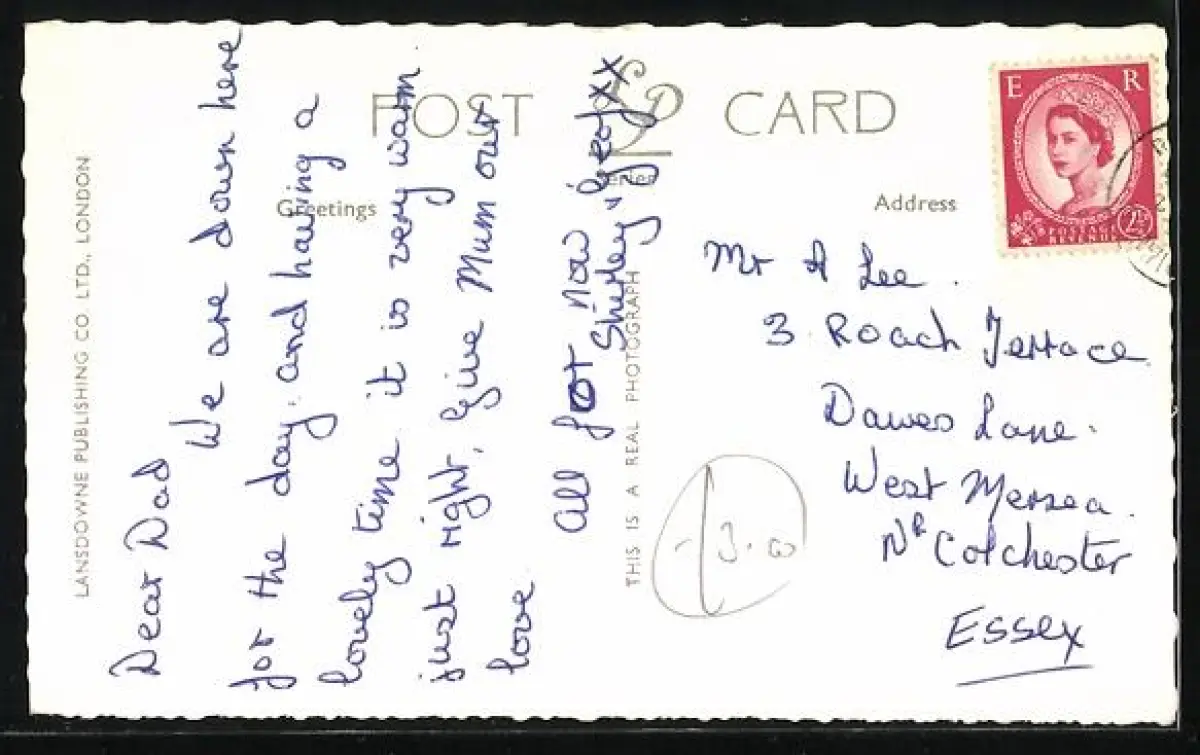 POST CARD
LP
Series
Greetings
Address
LANSDOWNE PUBLISHING CO. LTD., LONDON
THIS IS A REAL PHOTOGRAPH
Dear Dad
We are down here
for the day. and having a
lovely time. it is very warm.
just right, Give Mum our
love.
All for now
Shirley & Geof xx
Mr A Lee.
3 Roach Terrace
Dawes Lane.
West Mersea.
Nr Colchester
Essex
E R
2½D
POSTAGE
REVENUE